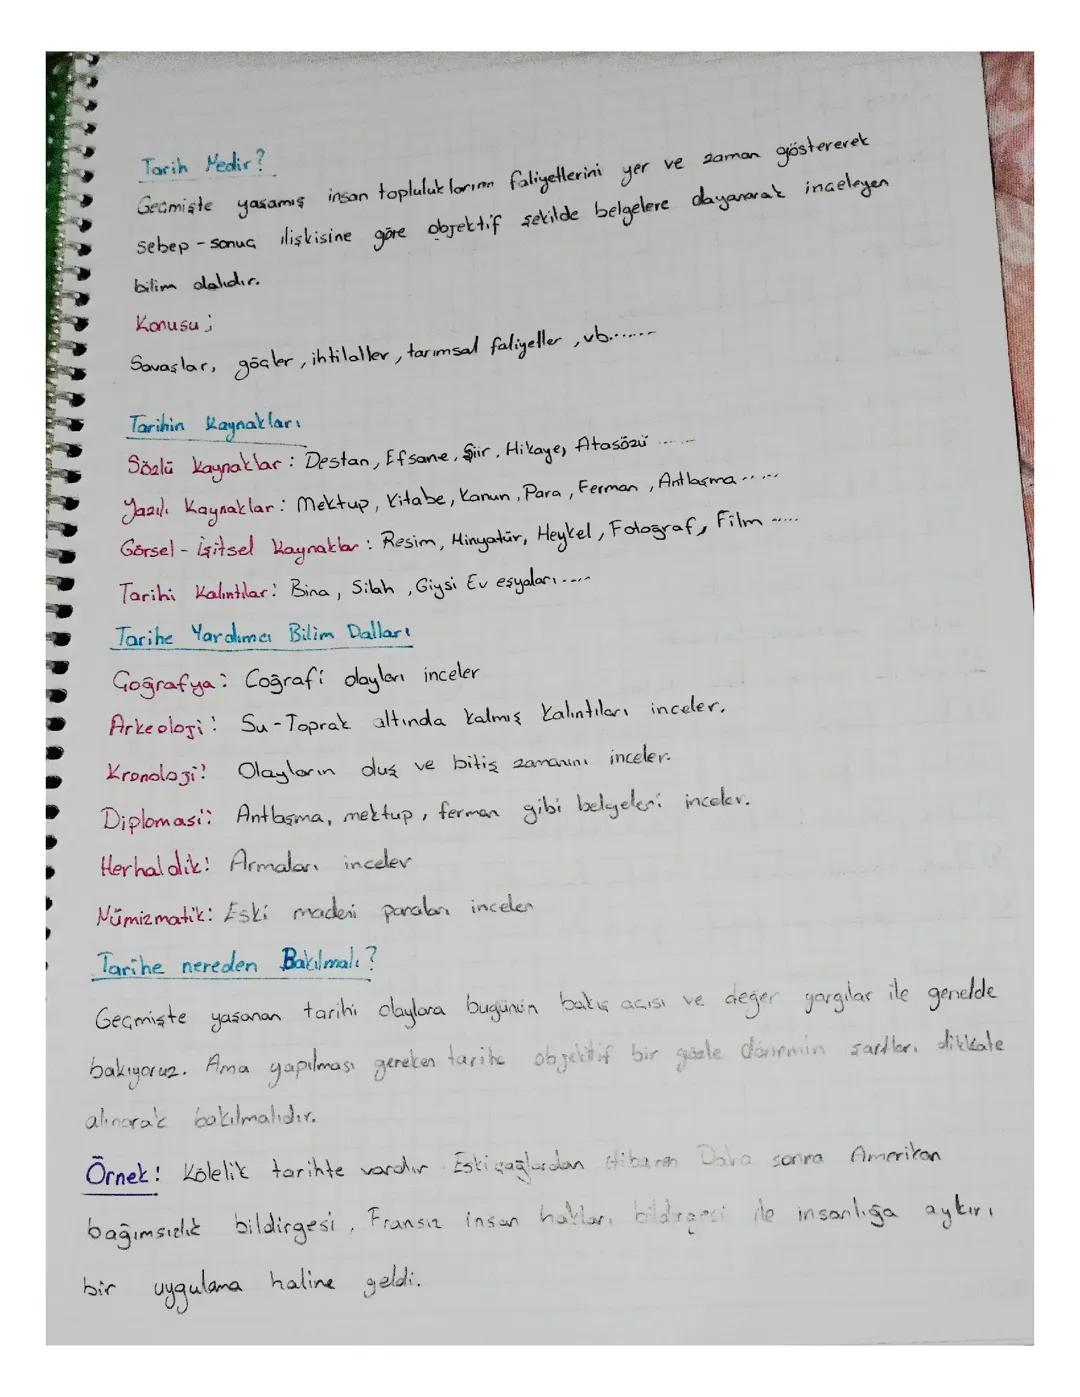 Tarih Nedir?
Geçmişte yaşamış insan topluluklarının faliyetlerini yer ve zaman göstererek
sebep-sonuç ilişkisine göre objektif şekilde belgelere dayanarak inceleyen
bilim dalıdır.
Konusu;
Savaşlar, göçler, ihtilaller, tarımsal faliyetler, vb.......
Tarihin Kaynakları
Sözlü kaynaklar: Destan, Efsane, Şiir, Hikaye, Atasözü ......
Yazılı Kaynaklar: Mektup, Kitabe, Kanun, Para, Ferman, Antlaşma ......
Görsel-İşitsel Kaynaklar: Resim, Minyatür, Heykel, Fotoğraf, Film .....
Tarihi Kalıntılar: Bina, Silah, Giysi Ev eşyaları .....
Tarihe Yardımcı Bilim Dalları
Coğrafya: Coğrafi olayları inceler
Arkeoloji: Su-Toprak altında kalmış kalıntıları inceler.
Kronoloji: Olayların oluş ve bitiş zamanını inceler.
Diplomasi: Antlaşma, mektup, ferman gibi belgeleri inceler.
Herhaldik: Armaları inceler
Nümizmatik: Eski madeni paraları inceler
Tarihe nereden Bakılmalı?
Geçmişte yaşanan tarihi olaylara bugünün bakış açısı ve değer yargılar ile genelde
bakıyoruz. Ama yapılması gereken tarihe objektif bir gözle dönemin şartları dikkate
alınarak bakılmalıdır.
Örnek: Kölelik tarihte vardır Eski çağlardan itibaren Daha sonra Amerikan
bağımsızlık bildirgesi, Fransız insan hakları bildirgesi ile insanlığa aykırı
bir uygulama haline geldi.